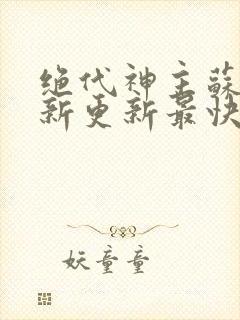 绝代神主蘇
新更新最快
妖童童